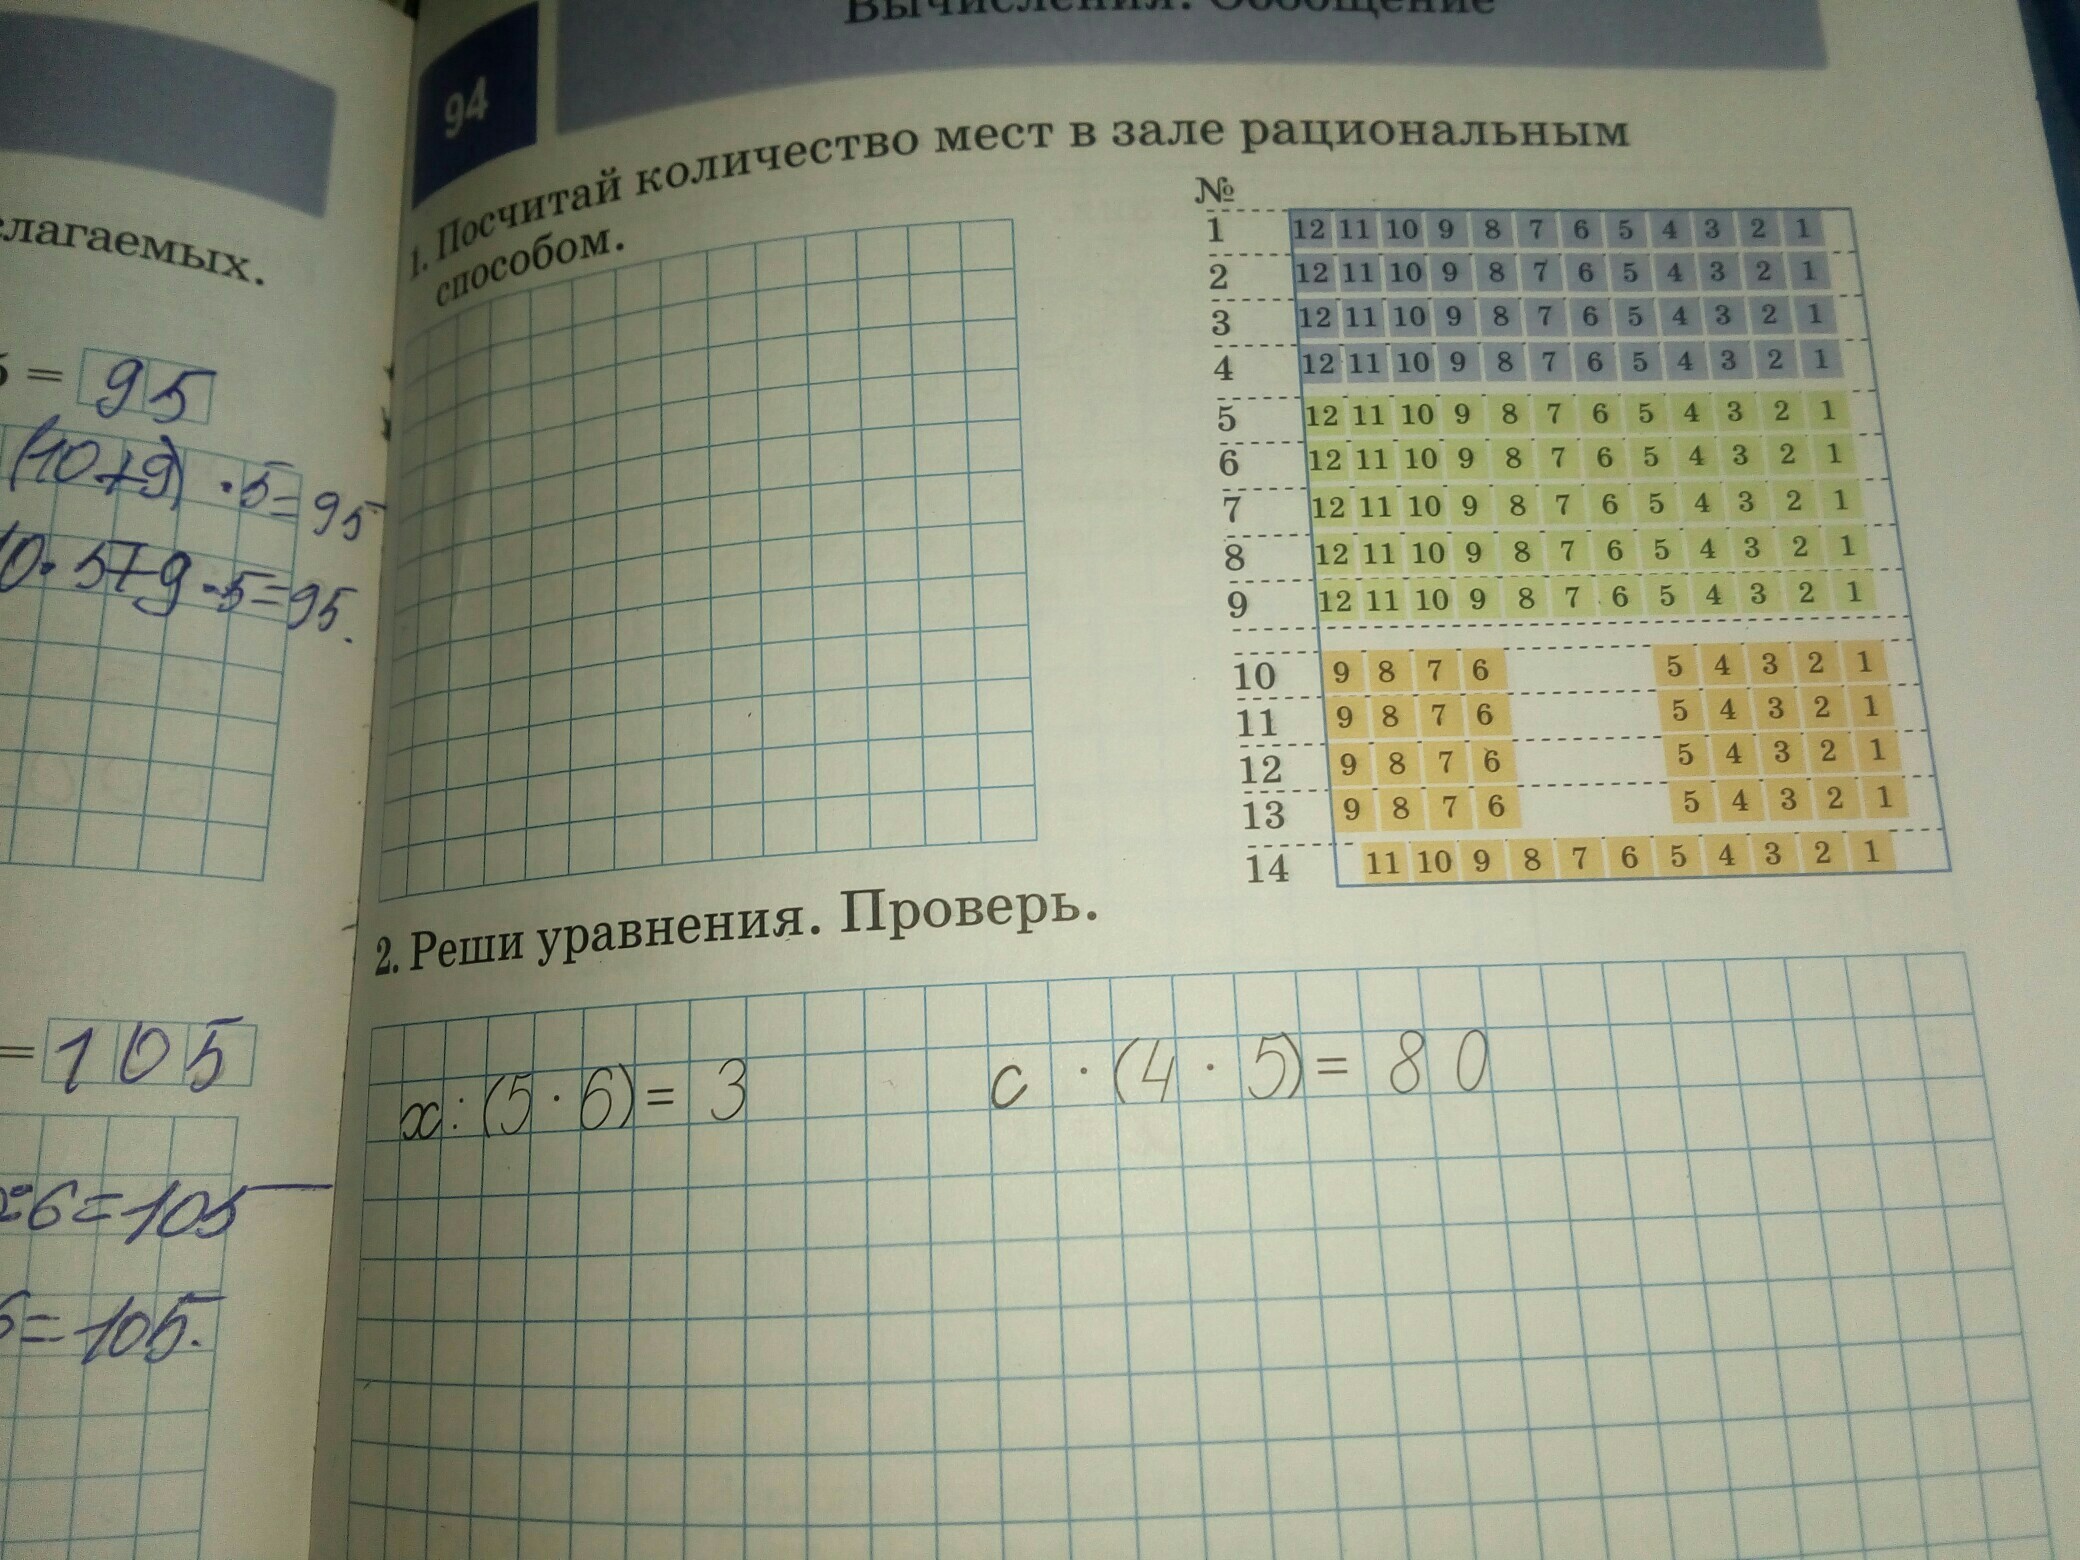 слагаемых.
5 = 95
(10+9) · 5 = 95
0 · 5 + 9 · 5 = 95.
= 105
6 = 105
= 105.
Вычисления. Обобщение
94
1. Посчитай количество мест в зале рациональным
способом.
№
1 12 11 10 9 8 7 6 5 4 3 2 1
2 12 11 10 9 8 7 6 5 4 3 2 1
3 12 11 10 9 8 7 6 5 4 3 2 1
4 12 11 10 9 8 7 6 5 4 3 2 1
5 12 11 10 9 8 7 6 5 4 3 2 1
6 12 11 10 9 8 7 6 5 4 3 2 1
7 12 11 10 9 8 7 6 5 4 3 2 1
8 12 11 10 9 8 7 6 5 4 3 2 1
9 12 11 10 9 8 7 6 5 4 3 2 1
10 9 8 7 6 5 4 3 2 1
11 9 8 7 6 5 4 3 2 1
12 9 8 7 6 5 4 3 2 1
13 9 8 7 6 5 4 3 2 1
14 11 10 9 8 7 6 5 4 3 2 1
2. Реши уравнения. Проверь.
x : (5 · 6) = 3 c · (4 · 5) = 80